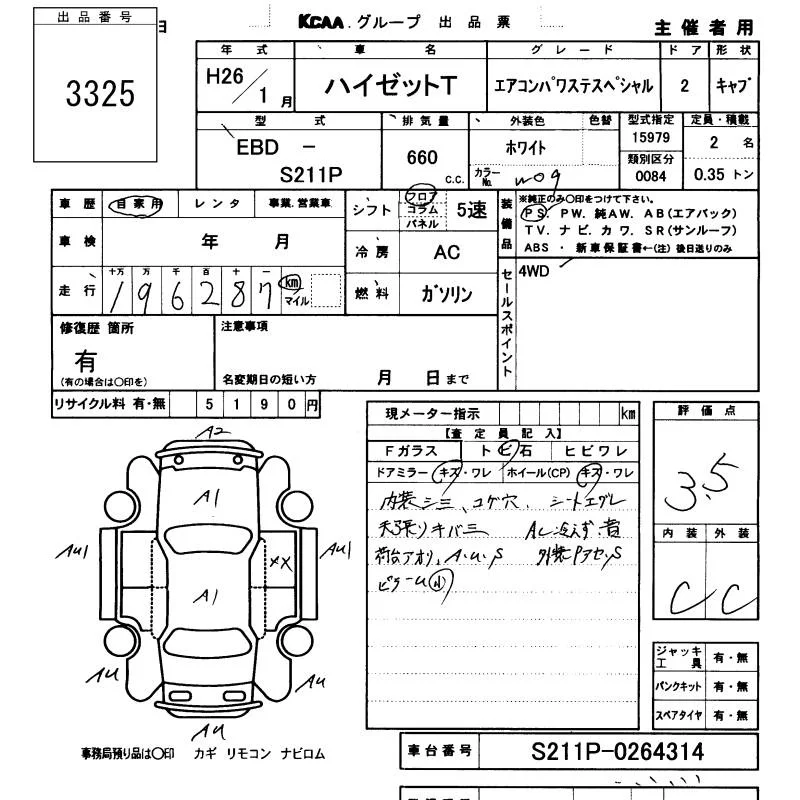 出品番号
日
3325
KCAA グループ 出品票
主催者用
年式 車名 グレード ドア 形状
H26/1月 ハイゼットT エアコンパワステスペシャル 2 キャブ
型式 排気量 外装色 色替 型式指定 定員・積載
EBD - S211P 660 c.c. ホワイト 15979 2 名
カラーNo. W09 類別区分 0084 0.35 トン
車歴 自家用 レンタ 事業.営業車
シフト フロア コラム パネル 5速
装備品 ※純正のみ〇印をつけて下さい。
PS. PW. 純AW. AB(エアバック)
TV. ナビ. カワ. SR(サンルーフ)
ABS ・ 新車保証書←(注) 後日送りのみ
車検 年 月
冷房 AC
走行 十万 万 千 百 十 一
196287 km マイル
燃料 ガソリン
セールスポイント 4WD
修復歴 箇所
有
(有の場合は〇印を)
注意事項
名変期日の短い方 月 日まで
リサイクル料 有・無 5190円
現メーター指示 km
【査定員記入】
Fガラス ト ビ石 ヒビワレ
ドアミラー キズ・ワレ ホイール(CP) キズ・ワレ
内装シミ、コゲ穴、シートエグレ
天張りキバミ AC冷えず.音
荷台アオリ、A.U.S 外装PアセS
ピラーU
評価点
3.5
内装 外装
C C
A2
A1
AU1
XX
AU1
A1
AU
AU
AU
ジャッキ工具 有・無
パンクキット 有・無
スペアタイヤ 有・無
事務局預り品は〇印 カギ リモコン ナビロム
車台番号 S211P-0264314